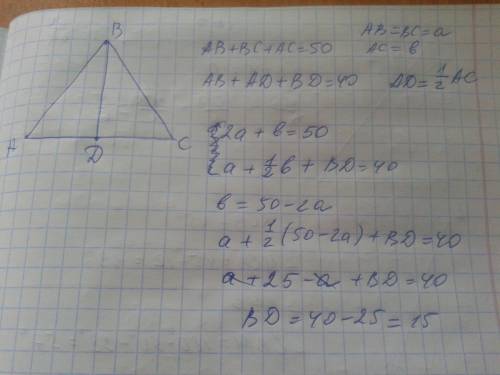 B
A D C
AB = BC = a
AB + BC + AC = 50 AC = b
AB + AD + BD = 40 AD = 1/2 AC
{ 2a + b = 50
a + 1/2 b + BD = 40
b = 50 - 2a
a + 1/2 (50 - 2a) + BD = 40
a + 25 - a + BD = 40
BD = 40 - 25 = 15